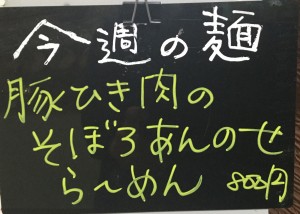 今週の麺
豚ひき肉の
そぼろあんのせ
ら〜めん 800円